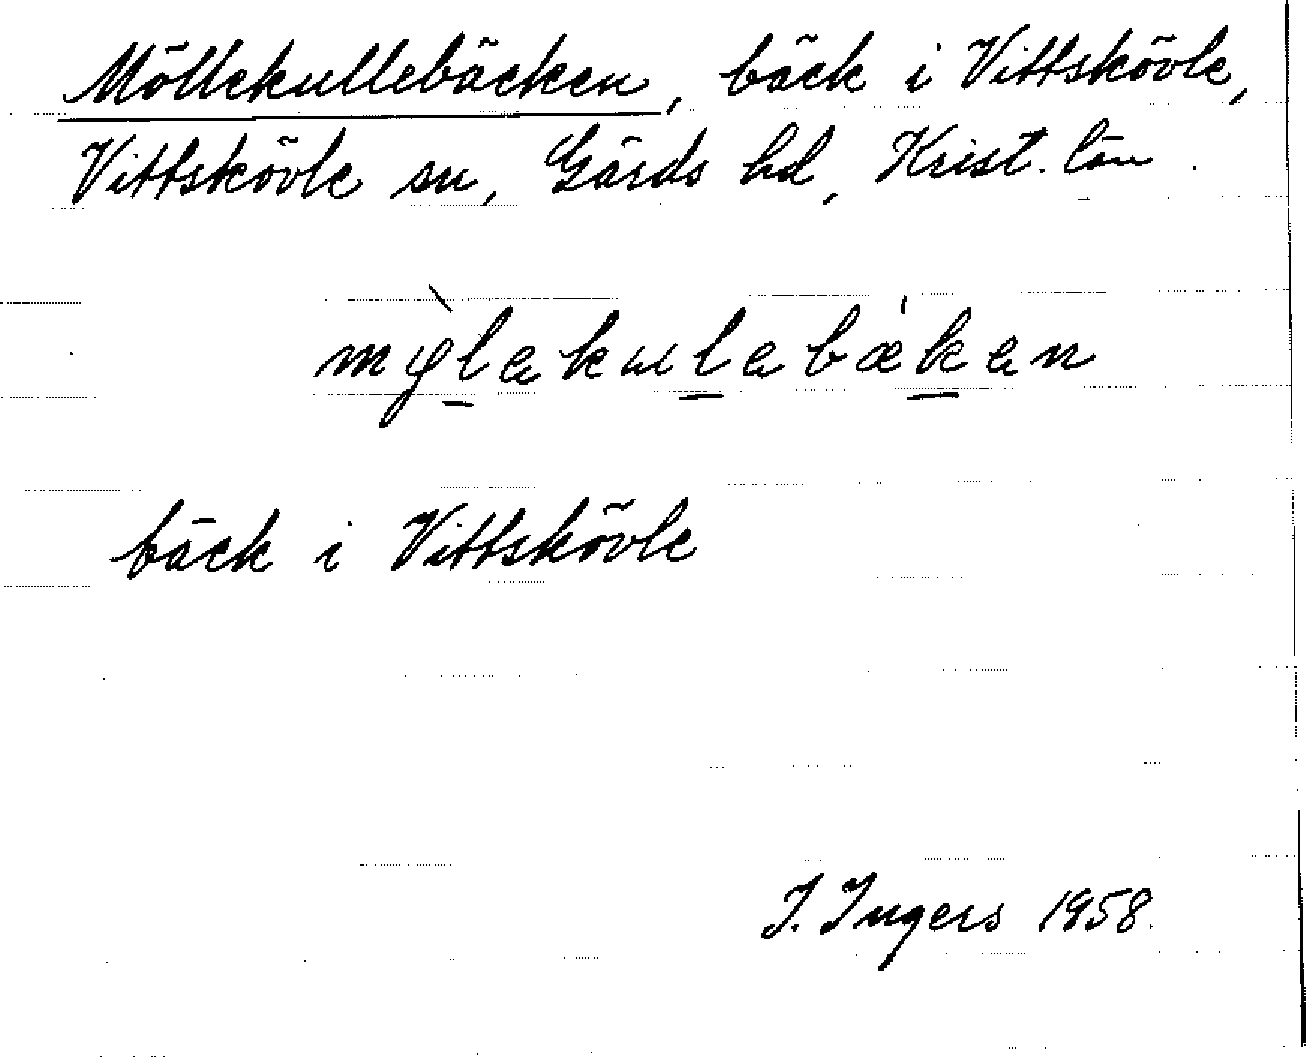 Möllekullebäcken, bäck i Vittskövle,
Vittskövle sn, Gärds hd, Krist. län.
bäck i Vittskövle
I. Ingers 1958.